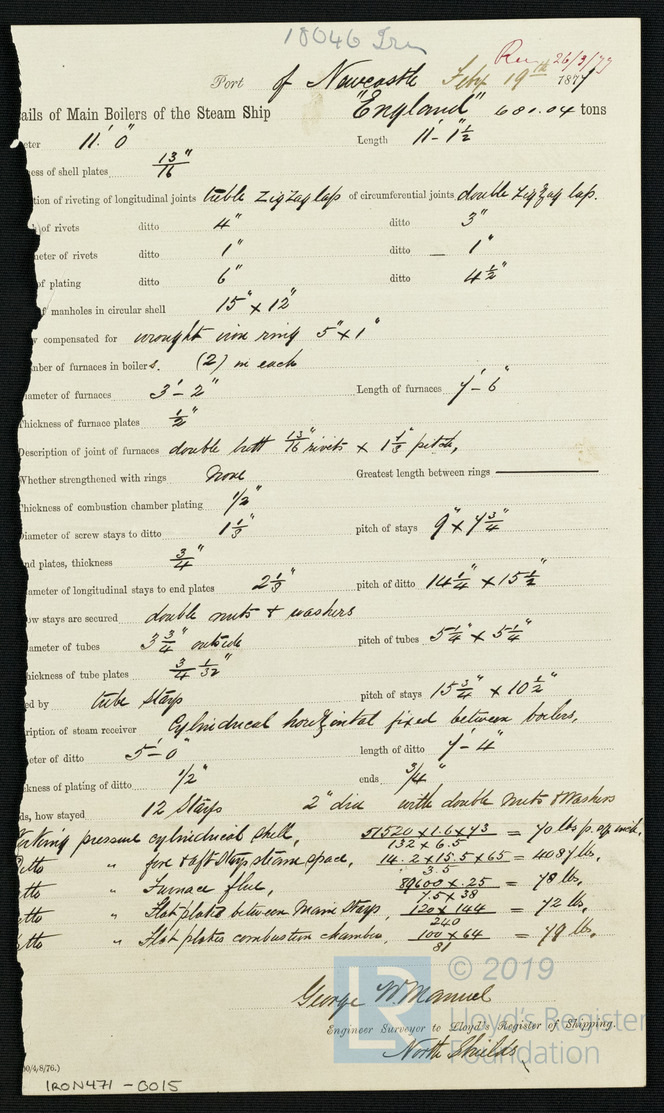 18046 Iron
Rec 26/3/77
Port of Newcastle Feby 19th 1877
ails of Main Boilers of the Steam Ship "England" 681.04 tons
eter 11' 0" Length 11'-1½
ness of shell plates 13/16"
tion of riveting of longitudinal joints treble zigzag lap of circumferential joints double zigzag lap.
of rivets ditto 4" ditto 3"
meter of rivets ditto 1" ditto 1"
of plating ditto 6" ditto 4½"
of manholes in circular shell 15" x 12"
w compensated for wrought iron ring 5" x 1"
mber of furnaces in boilers. (2) in each
iameter of furnaces 3'-2" Length of furnaces 7'-6"
Thickness of furnace plates ½"
Description of joint of furnaces double butt 13/16" rivets x pitch,
Whether strengthened with rings None Greatest length between rings
Thickness of combustion chamber plating 1/2"
Diameter of screw stays to ditto pitch of stays 9" x 7¾"
nd plates, thickness ¾"
ameter of longitudinal stays to end plates pitch of ditto 14¼ x 15½"
ow stays are secured double nuts & washers
ameter of tubes 3¾" outside pitch of tubes 5¼" x 5¼"
hickness of tube plates ¾ 1/32"
ed by tube stays pitch of stays 15¾" x 10½"
ription of steam receiver Cylindrical horizontal fixed between boilers,
eter of ditto 5'-0" length of ditto 7'-4"
ckness of plating of ditto 1/2" ends 3/4"
ds, how stayed 12 Stays 2" dia with double nuts & washers
rking pressure cylindrical shell, 51520 x 1.6 x 73 / 132 x 6.5 = 70 lbs p. sq inch,
itto " fore & aft stays steam space, 14.2 x 15.5 x 65 / 3.5 = 4087 lbs,
tto " Furnace flue, 89600 x .25 / 7.5 x 38 = 78 lbs,
tto " Flat plates between Main Stays, 120 x 144 / 240 = 72 lbs,
tto " Flat plates combustion chamber, 100 x 64 / 81 = 79 lbs,
George W. Manuel
Engineer Surveyor to Lloyd's Register of Shipping.
North Shields
© 2019
LR
Lloyd's Register
Foundation
00/4/8/76.)
IRON471-0015